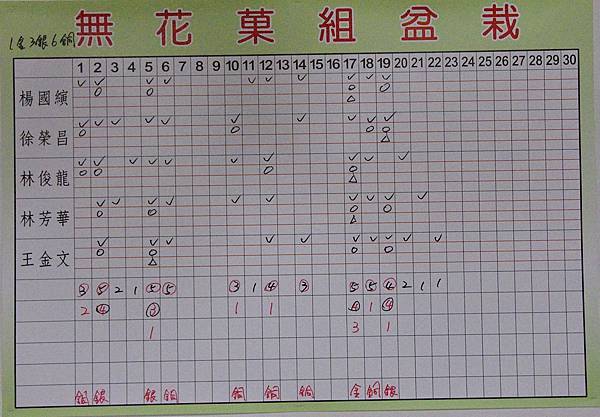 無花菓組盆栽
1金3銀6銅
1 2 3 4 5 6 7 8 9 10 11 12 13 14 15 16 17 18 19 20 21 22 23 24 25 26 27 28 29 30
楊國縯
徐榮昌
林俊龍
林芳華
王金文
③ ⑤ 2 1 ⑤ ⑤ ③ 1 ④ ③ 5 ⑤ ④ 2 1 1
2 ④ ③ 1 1 ④ 1 ④
1 3 1
銅 銀 銀 銅 銅 銅 銅 金 銅 銀